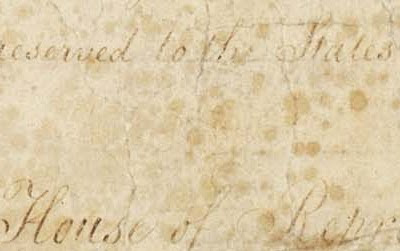 reserved to the States
House of Repr